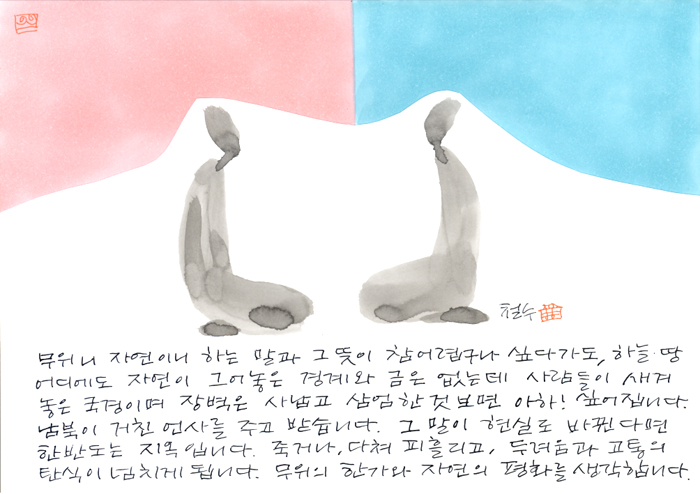 철수
무위니 자연이니 하는 말과 그 뜻이 참 어렵구나 싶다가도, 하늘·땅
어디에도 자연이 그어놓은 경계와 금은 없는데 사람들이 새겨
놓은 국경이며 장벽은 사납고 삼엄한 것 보면 아하! 싶어집니다.
남북이 거친 언사를 주고 받습니다. 그 말이 현실로 바뀐다면
한반도는 지옥입니다. 죽거나, 다쳐 피흘리고, 두려움과 고통의
탄식이 넘치게 됩니다. 무위의 한가와 자연의 평화를 생각합니다.